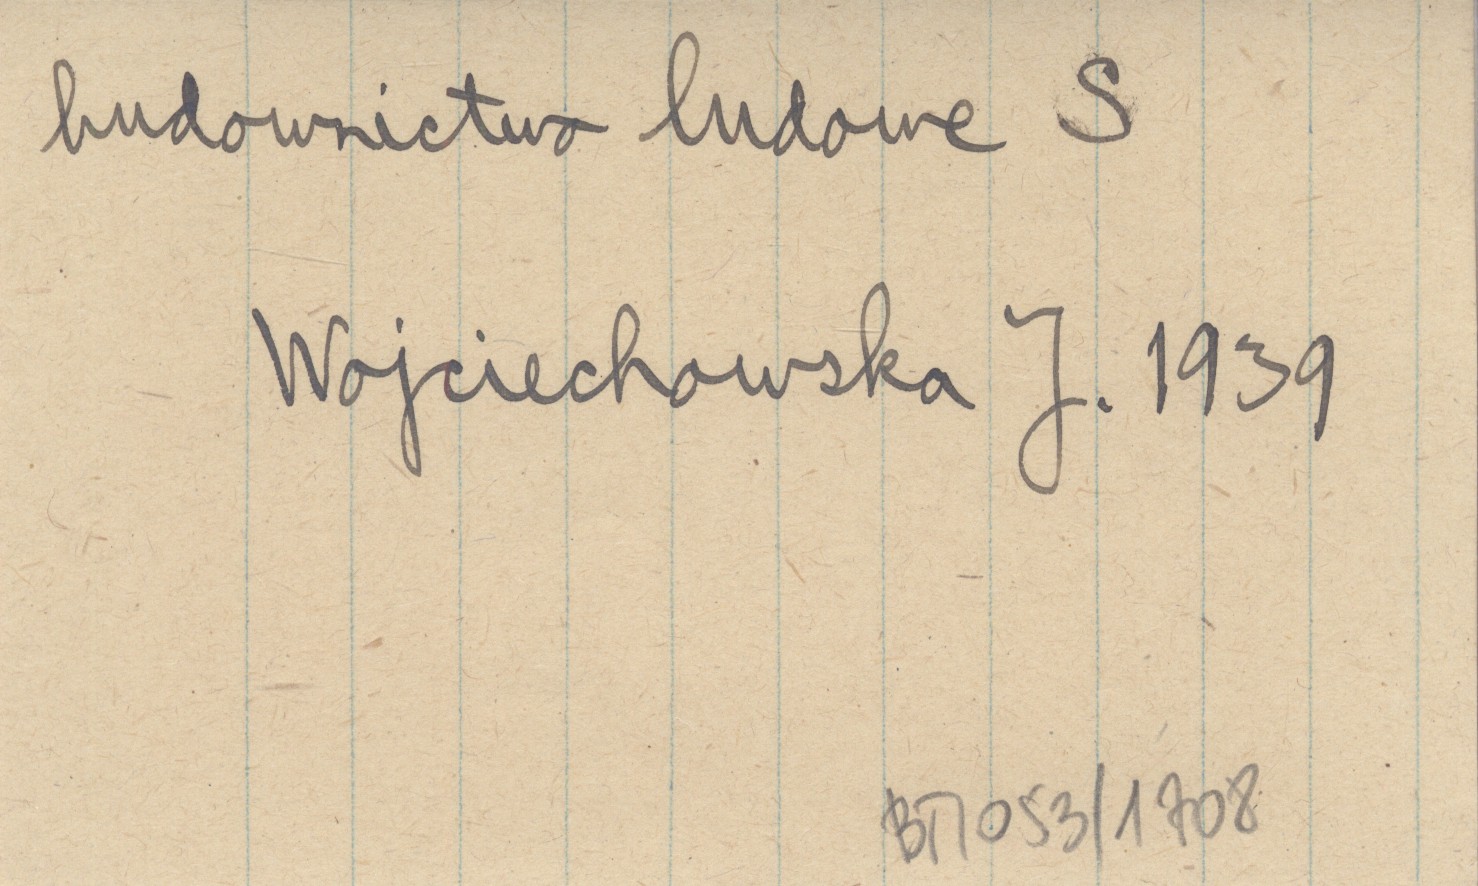 budownictwo ludowe S
Wojciechowska J. 1939
BП053/1708